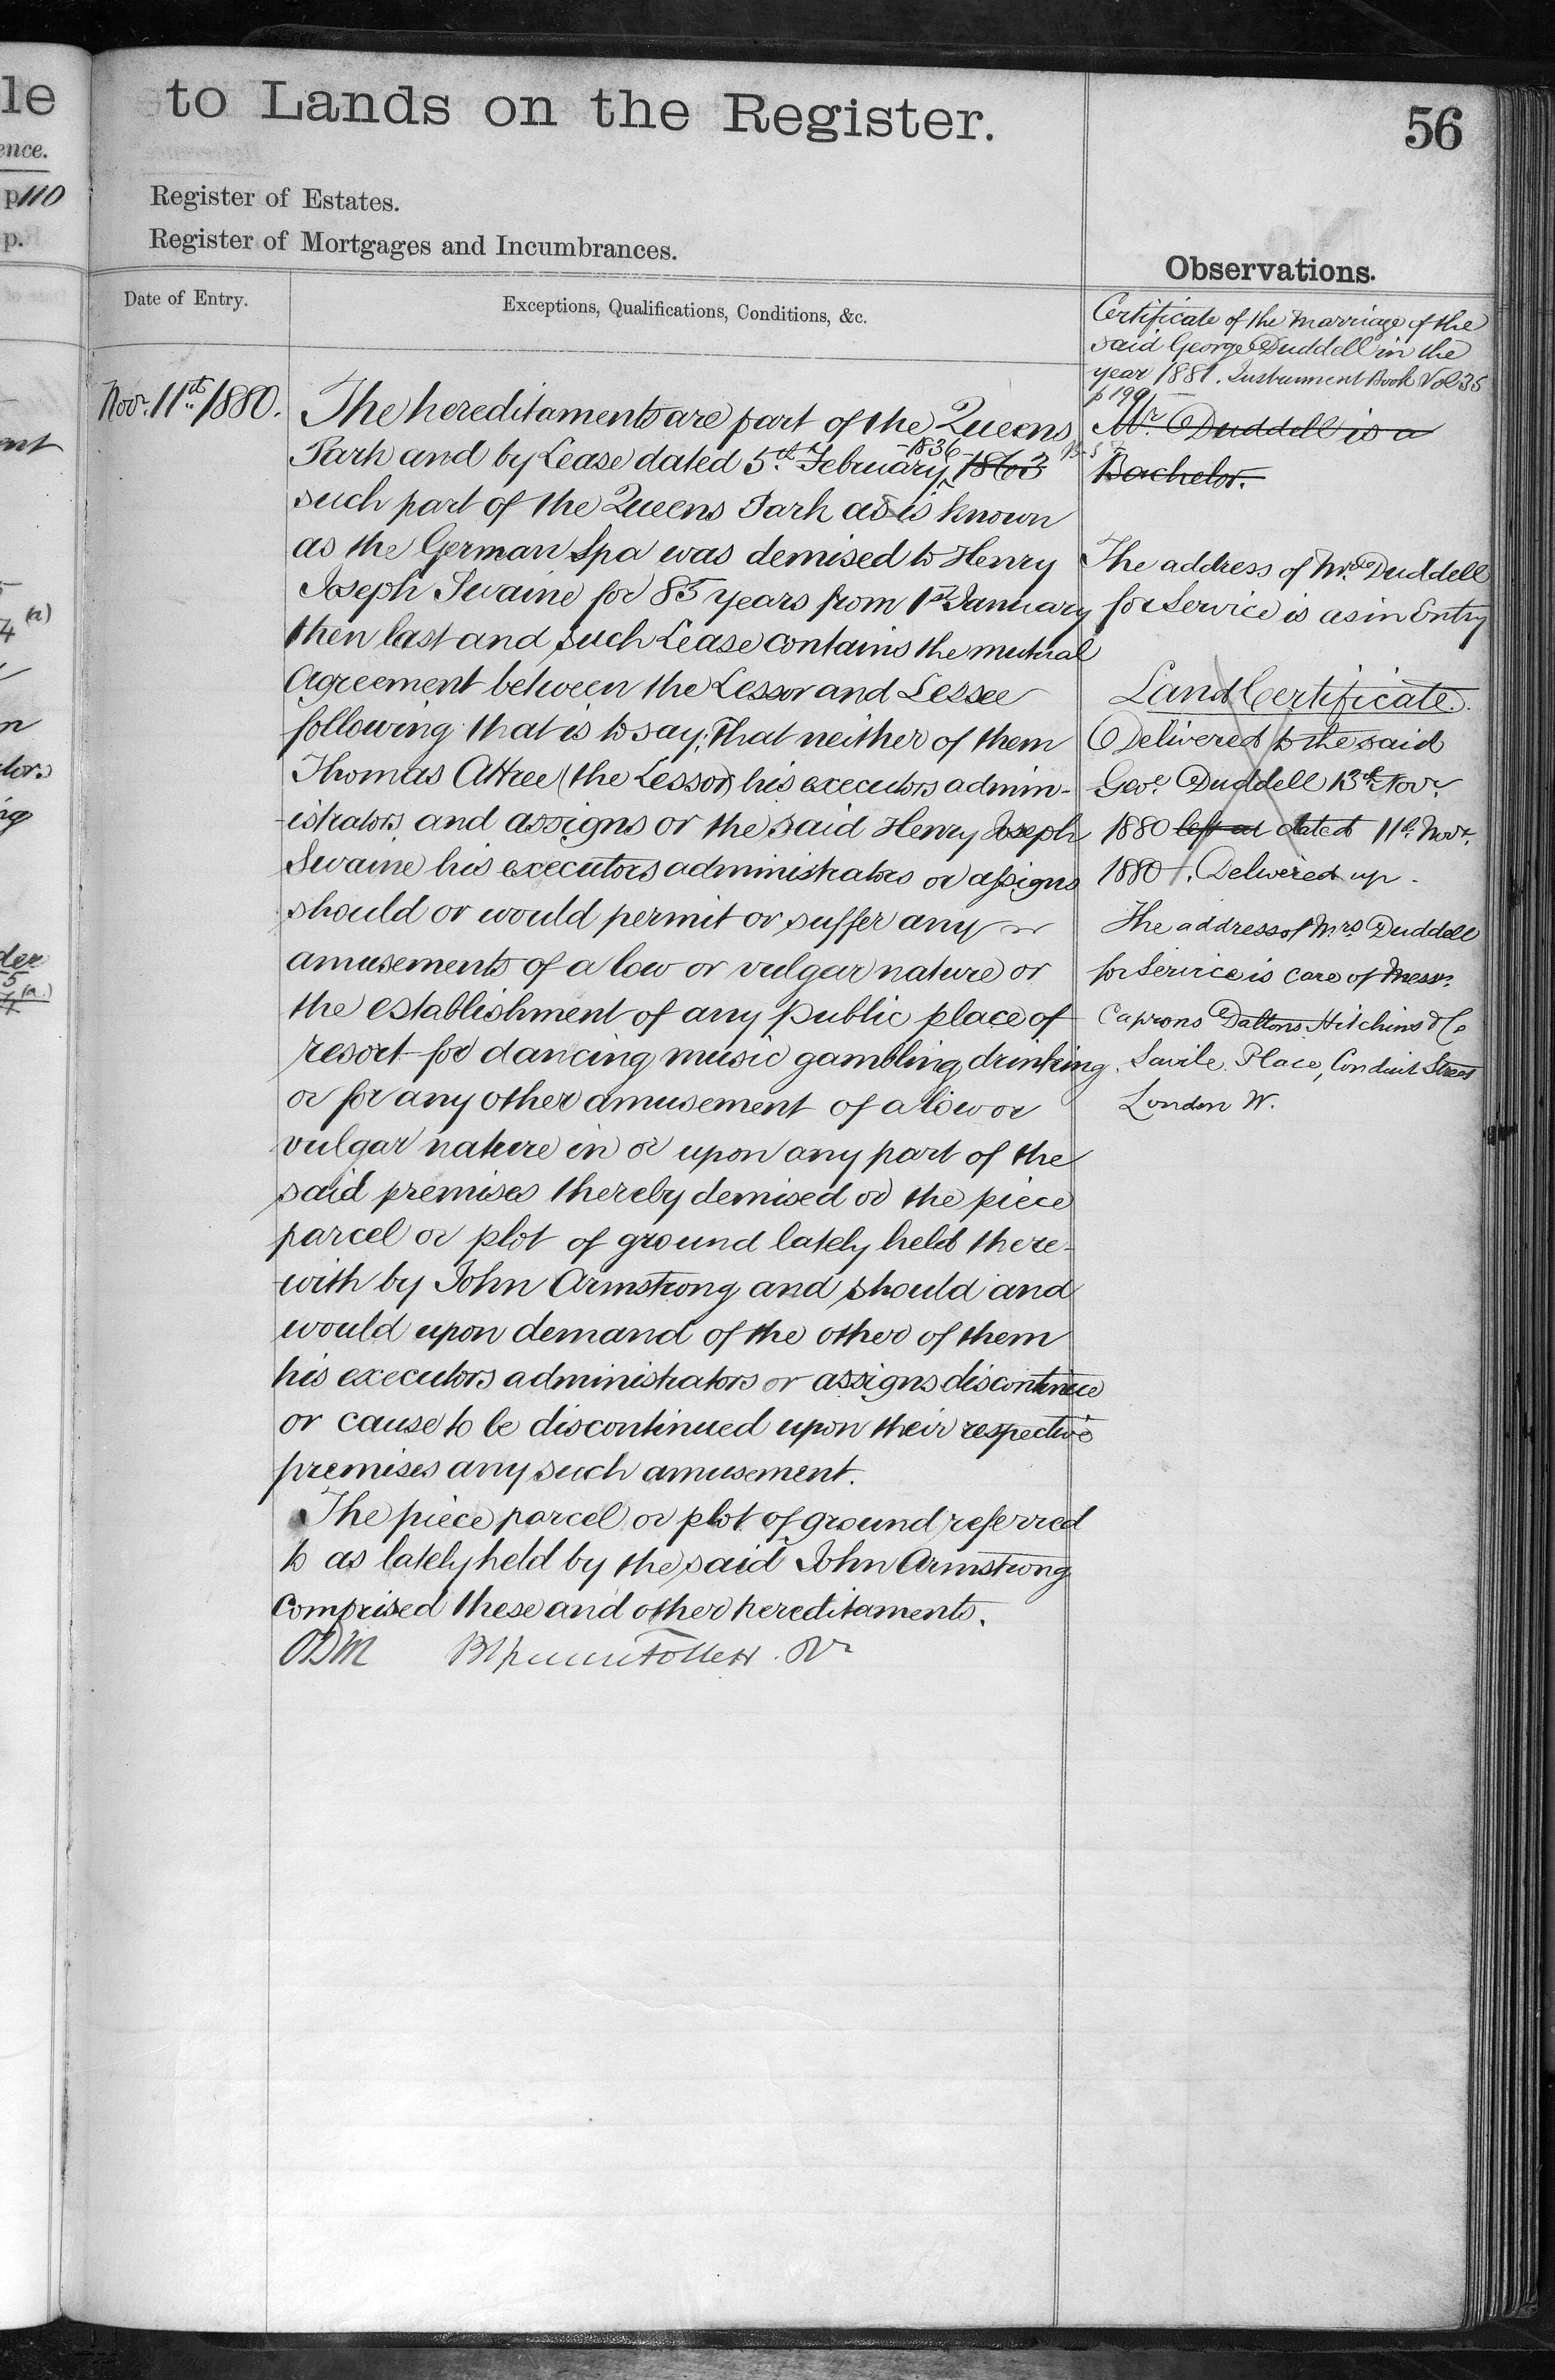 le
ence.
p110
p.
to Lands on the Register.
56
Register of Estates.
Register of Mortgages and Incumbrances.
Date of Entry.
Exceptions, Qualifications, Conditions, &c.
Nov. 11th 1880.
The hereditaments are part of the Queens
Park and by Lease dated 5th February 1836 1863
such part of the Queens Park as is known
as the German Spa was demised to Henry
Joseph Swaine for 85 years from 1st January
then last and such Lease contains the mutual
Agreement between the Lessor and Lessee
following that is to say; That neither of them
Thomas Attree (the Lessor) his executors admin-
-istrators and assigns or the said Henry Joseph
Swaine his executors administrators or assigns
should or would permit or suffer any
amusements of a low or vulgar nature or
the establishment of any public place of
resort for dancing music gambling drinking
or for any other amusement of a low or
vulgar nature in or upon any part of the
said premises thereby demised or the piece
parcel or plot of ground lately held there-
-with by John Armstrong and should and
would upon demand of the other of them
his executors administrators or assigns discontinue
or cause to be discontinued upon their respective
premises any such amusement.
The piece parcel or plot of ground referred
to as lately held by the said John Armstrong
comprised these and other hereditaments.
Observations.
Certificate of the Marriage of the
said George Duddell in the
year 1881. Instrument Book Vol 35
p 199
Mr. Duddell is a
Bachelor.
The address of Mr. Duddell
for Service is as in Entry
Land Certificate.
Delivered to the said
Geo. Duddell 13th Nov.
1880 left at dated 11th Novr.
1880. Delivered up.
The address of Mrs Duddell
for Service is care of Messrs.
Caprons Daltons Hitchins & Co
Savile Place, Conduit Street
London W.